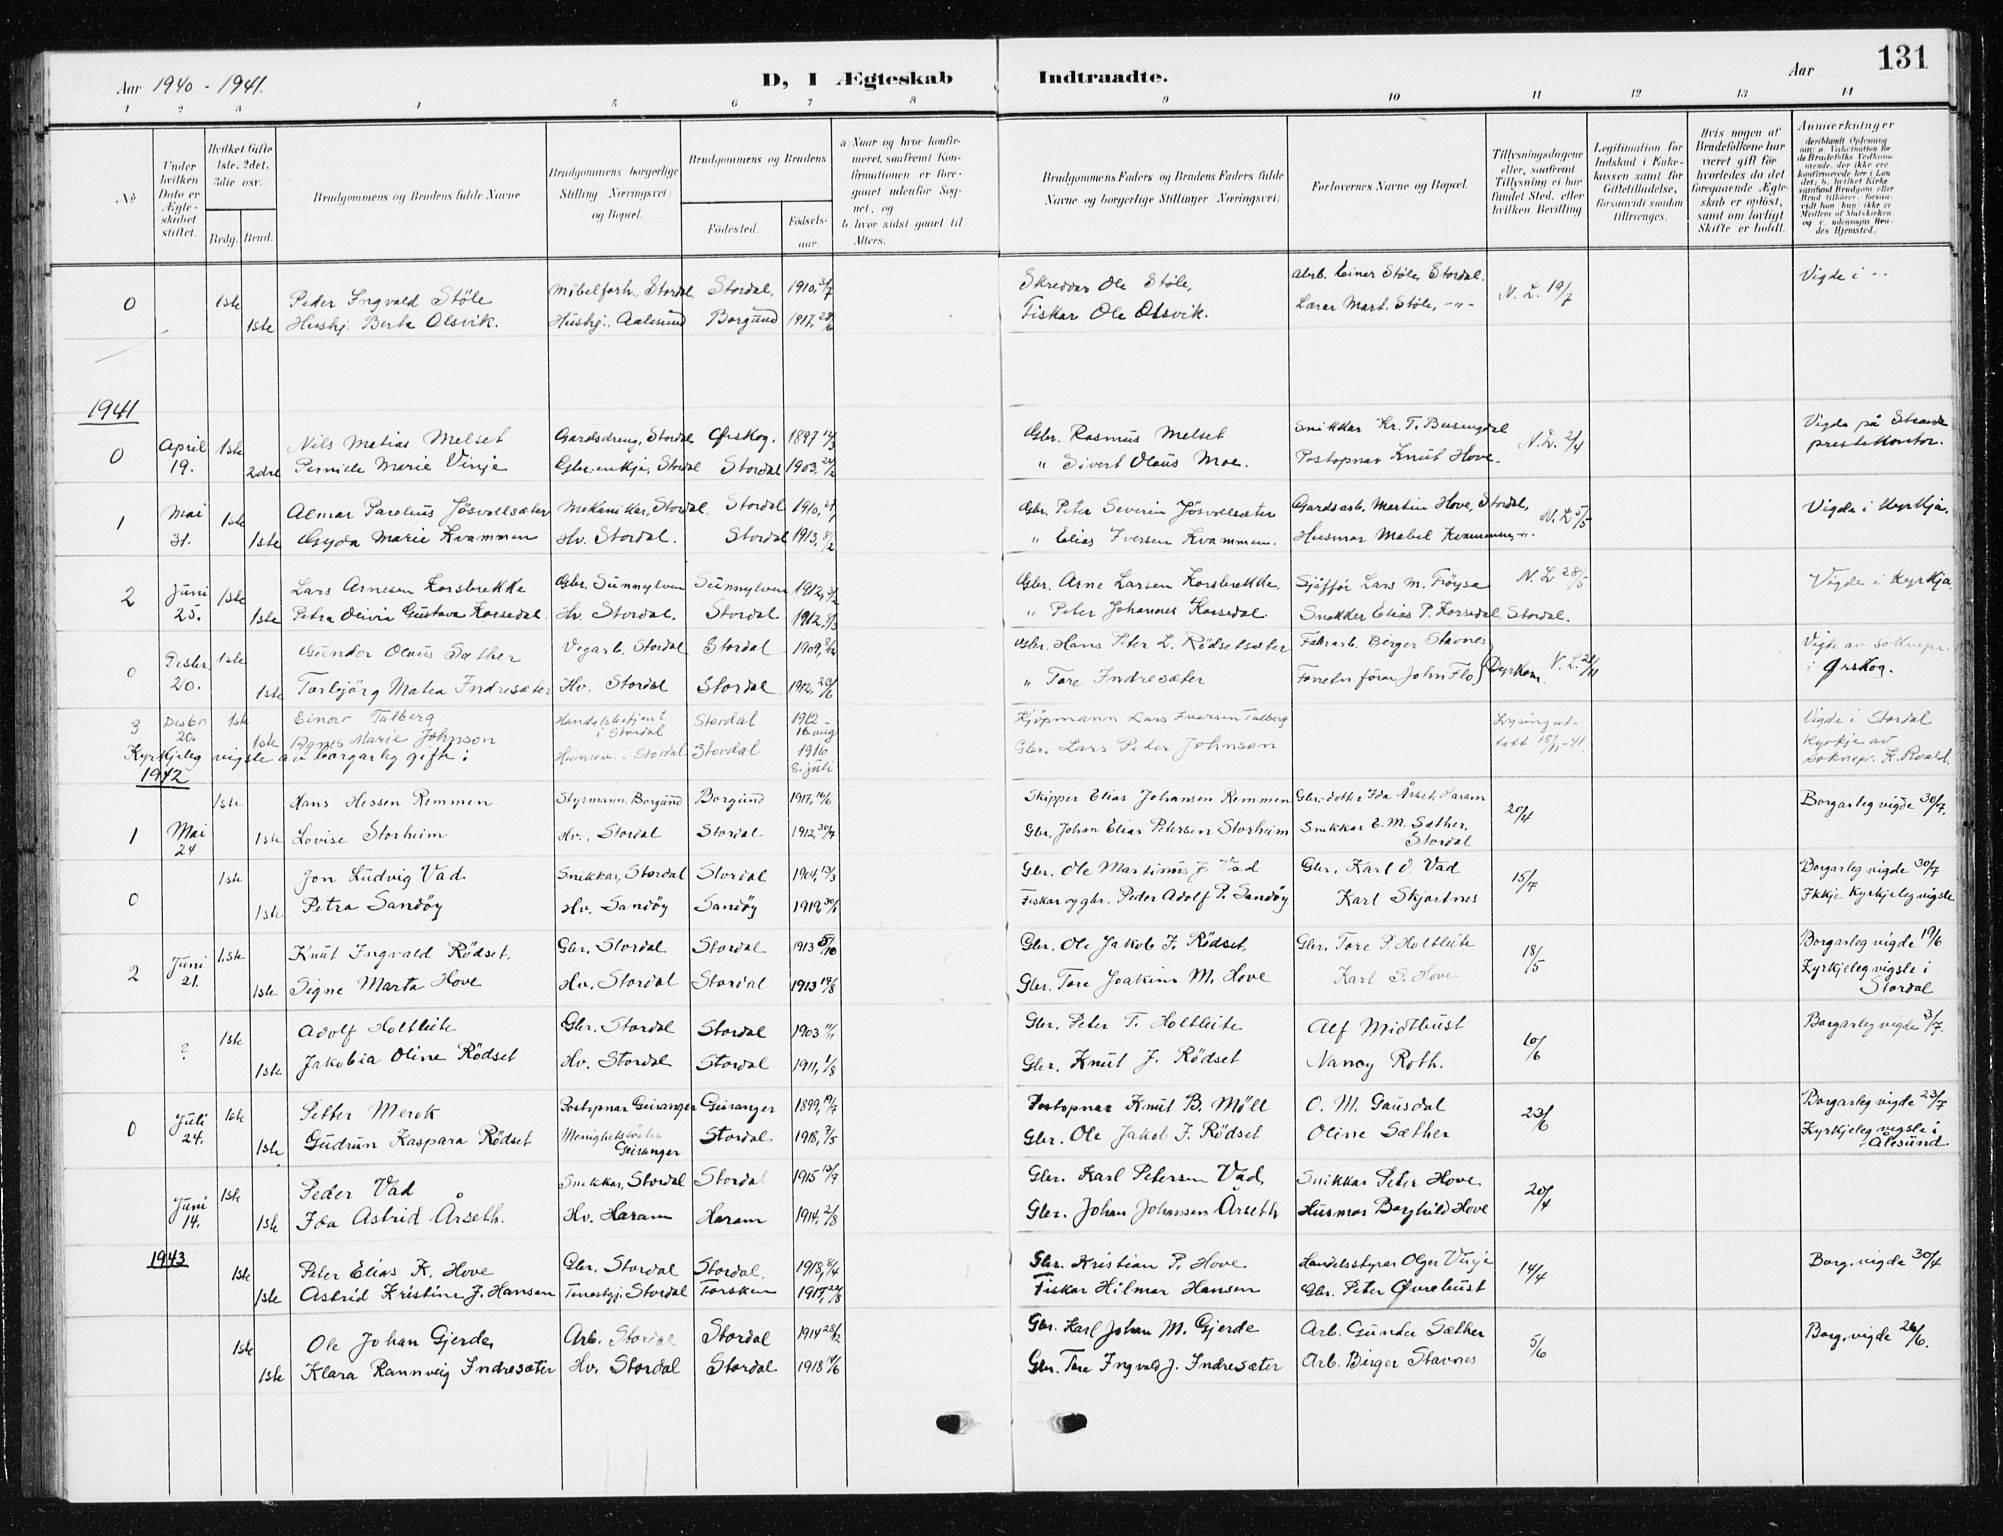 Aar 1940 - 1941.
D, I Ægteskab
Indtraadte.
Aar
131
1 2 3 4 5 6 7 8 9 10 11 12 13 14
No
Under hvilken Dato er Ægteskabet stiftet.
Hvilket Gifte 1ste. 2det. 3die osv.
Brdg. Brud.
Brudgommens og Brudens fulde Navne
Brudgommens borgerlige Stilling (Næringsvei) og Bopæl.
Brudgommens og Brudens
Fødested.
Fødselsaar.
a) Naar og hvor konfirmeret, saafremt Konfirmationen er foregaaet udenfor Sognet, og
b) hvor sidst gaaet til Alters.
Brudgommens Faders og Brudens Faders fulde Navne og borgerlige Stillinger (Næringsvei)
Forlovernes Navne og Bopæl.
Tillysningsdagene eller, saafremt Tillysning ei har fundet Sted, efter hvilken Bevilling.
Legitimation for Indskud i Enkekassen samt for Giftetilladelse, forsaavidt saadan tiltrænges.
Hvis nogen af Brudefolkene har været gift før hvorledes da det foregaaende Ægteskab er opløst, samt om lovligt Skifte er holdt.
Anmerkninger
0 1ste Peder Ingvald Støle Møbelforh., Stordal Stordal, 1910, 31/7 Skreddar Ole Støle, Arb. Einar Støle, Stordal. N. L. 19/7 Vigde i
1ste Hushj. Berta Olsvik. Hushj., Aalesund Borgund 1917, 28/6 Fiskar Ole Olsvik. Lærar Mart. Støle, -"-
1941
0 April 19. 1ste Nils Matias Melset Gardsdreng, Stordal Ørskog. 1897 12/3 Gbr. Rasmus Melset Snikkar Kr. T. Busengdal N. L. 2/4 Vigde på Stranda prestekontor.
2dre Pernille Marie Vinje Gbr.enkja, Stordal Stordal 1903, 24/2 " Sivert Olaus Moe. Postopnar Knut Hove
1 Mai 31. 1ste Almar Parelius Jøsvollsæter Mekanikar, Stordal Stordal 1910, Gbr. Peter Severin Jøsvollsæter Gardsarb. Martin Hove, Stordal, N. L 5/5 Vigde i Kyrkja.
1ste Gyda Marie Kvammen Hv. Stordal. Stordal 1913, 8/2 " Elias Iversen Kvammen. Husmor Mabel Kvammen, -"-
2 Juni 25. 1ste Lars Arnesen Korsbrekke Gbr. Sunnylven Sunnylven 1912, Gbr. Arne Larsen Korsbrekke Sjåffør Lars M. Frøysa N. L 28/5 Vigde i Kyrkja
1ste Petra Olivia Gustava Korsedal. Hv. Stordal. Stordal 1912. 8/3 " Peter Johannes Korsedal. Snekker Elias P. Korsedal, Stordal.
0 Desbr 20. 1ste Gunder Olaus Sæther Vegarb. Stordal Stordal 1909, 8/12 Gbr. Hans Peter L. Rödsetsæter Fabrarb. Birger Stavnes Dyrkorn. N. L. 21/11 Vigde av soknepr. i Ørskog.
1ste Torbjörg Matea Indresæter Hv. Stordal Stordal 1912, 23/6 " Tore Indresæter John Flo
3 Desbr 20. 1ste Einar Talberg Handelsbetjent i Stordal Stordal 1912 - 16 aug Kjøpmann Lars Iversen Talberg Lysing ut- tatt 18/11-41. Vigde i Stordal Kyrkje av soknepr. K. Roald.
1ste Agnes Marie Johnson Stordal Stordal 1916 8. juli Gbr. Lars Peter Johnson
Kyrkjeleg vigsle av borgarleg gifte:
1942
1 Mai 24 1ste Hans Hessen Remmen Styrmann, Borgund Borgund 1917, 16/6 Skipper Elias Johansen Remmen Gbr.-dotter Ida Årset, Haram 20/4 Borgarleg vigde 30/7.
1ste Lovise Storheim Hv., Stordal Stordal 1912 30/7 Gbr. Johan Elias Petersen Storheim Snikkar E. M. Sæther, Stordal
0 1ste Jon Ludvig Vad Snikkar, Stordal Stordal 1904, 13/3 Gbr. Ole Martinus J. Vad Gbr. Karl O. Vad 15/7 Borgarleg vigde 30/7
1ste Petra Sandöy Hv. Sandöy Sandöy 1912 30/1 Fiskar og gbr. Peder Adolf P. Sandöy Karl Skjortnes Ikkje Kyrkjeleg vigsle
2 Juni 21. 1.ste Knut Ingvald Rödset. Gbr. Stordal Stordal 1913 5/10 Gbr. Ole Jakob J. Rödset. Gbr. Tore P. Holtleite 18/5 Borgarleg vigde 19/6
1ste Signe Marta Hove Hv. Stordal Stordal 1913 19/8 Gbr. Tore Joakim M. Hove Karl S. Hove Kyrkjeleg vigsle i Stordal
? 1ste Adolf Holtleite Gbr. Stordal Stordal 1903 11/1 Gbr. Peter T. Holtleite Alf Midtbust 10/6 Borgarleg vigde 3/7.
1ste Jakobia Oline Rödset Hv. Stordal Stordal 1911, 1/8 Gbr. Knut J. Rödset Nancy Roth.
0 Juli 24. 1ste Petter Merok Postopnar Geiranger Geiranger 1899, 19/7 Postopnar Knut B. Möll O. M. Gausdal 23/6 Borgarleg vigde 23/7
1ste Gudrun Kaspara Rödset Menighetssöster Geiranger Stordal 1918, 9/5 Gbr. Ole Jakob J. Rödset Oline Sæther Kyrkjeleg vigsle i Ålesund
Juni 14. 1ste Peder Vad Snikkar, Stordal Stordal 1915 13/9 Gbr. Karl Petersen Vad, Snikkar Peter Hove 20/4
1ste Ida Astrid Årseth. Hv. Haram Haram 1914, 2/8 Gbr. Johan Johansen Årseth Husmor Borghild Hove
1943
1ste Peter Elias K. Hove Gbr. Stordal Stordal. 1918, 8/4 Gbr. Kristian P. Hove Handelsstyrar Olger Vinje 14/4 Borg. vigde 30/4
1ste Astrid Kristine J. Hansen Tenestgj. Stordal Torsken 1917, 22/8 Fiskar Hilmar Hansen Gbr. Peter Øvrebust
1ste Ole Johan Gjerde Arb. Stordal Stordal 1914 28/12 Gbr. Karl Johan M. Gjerde Arb. Gunder Sæther 5/6 Borg. vigde 26/6.
1ste Klara Rannveig Indresæter Hv. Stordal Stordal 1918 14/6 Gbr. Tore Ingvald J. Indresæter Arb. Birger Stavnes